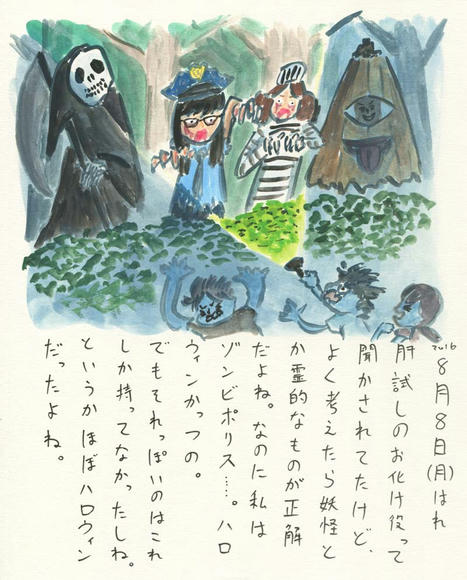 2016
8月8日(月)はれ
肝試しのお化け役って
聞かされてたけど、
よく考えたら妖怪と
か霊的なものが正解
だよね。なのに私は
ゾンビポリス……。ハロ
ウィンかっつの。
でもそれっぽいのはこれ
しか持ってなかったしね。
というかほぼハロウィン
だったよね。